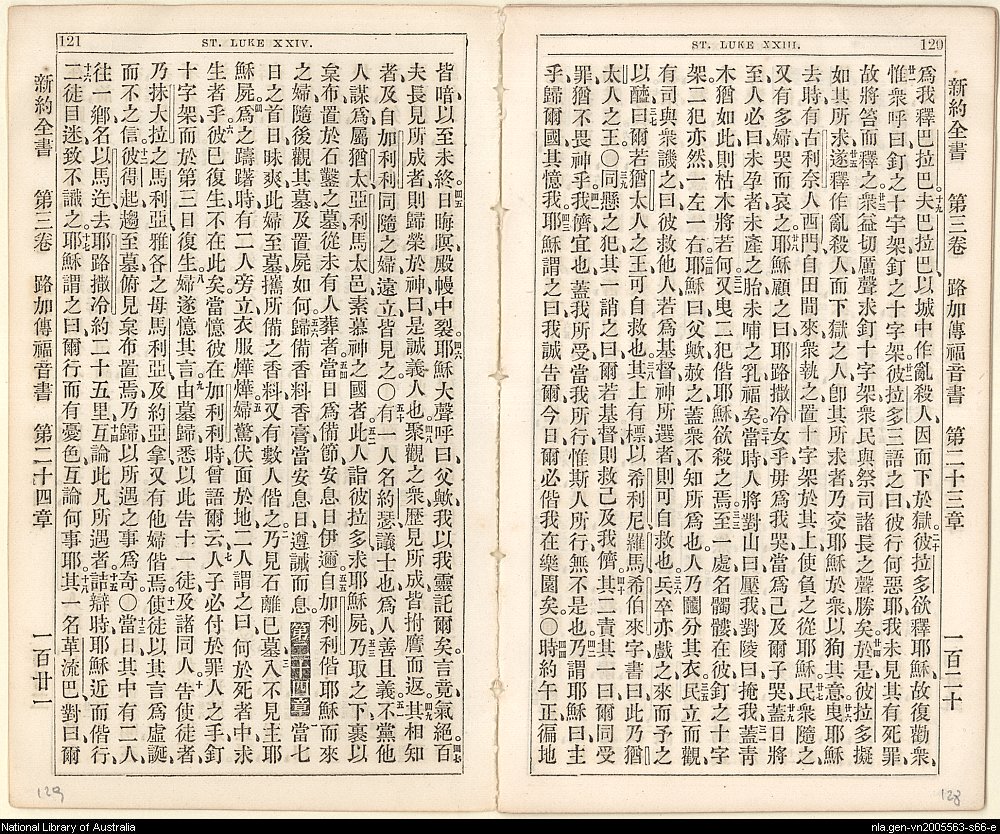 ST. LUKE XXIII. 120
新約全書 第三卷 路加傳福音書 第二十三章 一百二十
爲我釋巴拉巴、十九夫巴拉巴、以城中作亂殺人、因而下於獄。二十彼拉多欲釋耶穌、故復勸衆、
廿一惟衆呼曰、釘之十字架、釘之十字架。廿二彼拉多三語之曰、彼行何惡耶、我未見其有死罪、
故將笞而釋之。廿三衆益切厲聲求釘十字架、衆民與祭司諸長之聲勝矣。廿四於是彼拉多擬
如其所求、廿五遂釋作亂殺人而下獄之人、卽其所求者、乃交耶穌於衆、以狥其意。廿六曳耶穌
去時、有古利奈人西門、自田間來、衆執之、置十字架於其上、使負之從耶穌。廿七民衆隨之、
又有多婦哭而哀之。廿八耶穌顧之曰、耶路撒冷女乎、毋爲我哭、當爲己及爾子哭。廿九蓋日將
至、人必曰、未孕者、未產之胎、未哺之乳、福矣。三十當時人將對山曰、壓我、對陵曰、掩我。三一蓋靑
木猶如此、則枯木將若何。三二又曳二犯偕耶穌、欲殺之焉。三三至一處、名髑髏、在彼釘之十字
架、二犯亦然、一左一右。三四耶穌曰、父歟、赦之、蓋衆不知所爲也。人乃鬮分其衣。三五民立而觀、
有司與衆譏之曰、彼救他人、若爲基督、神所選者、則可自救也。三六兵卒亦戲之、來而予之
以醯、三七曰、爾若猶太人之王、可自救也。三八其上有標、以希利尼羅馬希伯來字書曰、此乃猶
太人之王。○三九同懸之犯、其一誚之曰、爾若基督、則救己及我儕。四十其二責其一曰、爾爾同受
罪、猶不畏神乎。四一我儕宜也、蓋我所受、當我所行、惟斯人所行、無不是也。四二乃謂耶穌曰、主
乎、歸爾國、其憶我。四三耶穌謂之曰、我誠吿爾、今日爾必偕我在樂園矣。○四四時約午正、徧地
128
121 ST. LUKE XXIV.
皆暗、以至未終。四五日晦暝、殿幔中裂。四六耶穌大聲呼曰、父歟、我以我靈託爾矣、言竟氣絕。四七百
夫長見所成者、則歸榮於神曰、是誠義人也。四八聚觀之衆、歷見所成、皆拊膺而返。四九其相知
者、及自加利利同隨之婦、遠立皆見之。○五十有一人名約瑟、議士也、爲人善且義、五一不黨他
人謀爲、屬猶太亞利馬太邑、素慕神之國者、五二此人詣彼拉多、求耶穌屍、五三乃取之下、裹以
枲布、置於石鑿之墓、從未有人葬者。五四當日爲備節安息日伊邇。五五自加利利偕耶穌而來
之婦隨後、觀其墓、及置屍如何、五六歸備香料香膏、當安息日、遵誡而息。 第二十四章 一當七
日之首日、昧爽、此婦至墓、攜所備之香料、又有數人偕之。二乃見石離已墓、三入、不見主耶
穌屍、四爲之躊躇、時有二人旁立、衣服燁燁、五婦驚、伏面於地、二人謂之曰、何於死者中求
生者乎、六彼已復生、不在此矣、當憶彼在加利利時、曾語爾云、七人子必付於罪人之手、釘
十字架、而於第三日復生。八婦遂憶其言、九由墓歸、悉以此吿十一徒及諸同人。十吿使徒者、
乃抹大拉之馬利亞、雅各之母馬利亞、及約亞拿、又有他婦偕焉。十一使徒以其言爲虛誕
而不之信。十二彼得起、趨至墓、俯見枲布置焉、乃歸、以所遇之事爲奇。○十三當日、其中有二人、
往一鄉、名以馬迕、去耶路撒冷約二十五里、十四互論此凡所遇者、十五詰辯時、耶穌近而偕行、
十六二徒目迷、致不識之。十七耶穌謂之曰、爾行而有憂色、互論何事耶。十八其一名革流巴、對曰、爾
新約全書 第三卷 路加傳福音書 第二十四章 一百廿一
129
National Library of Australia
nla.gen-vn2005563-s66-e